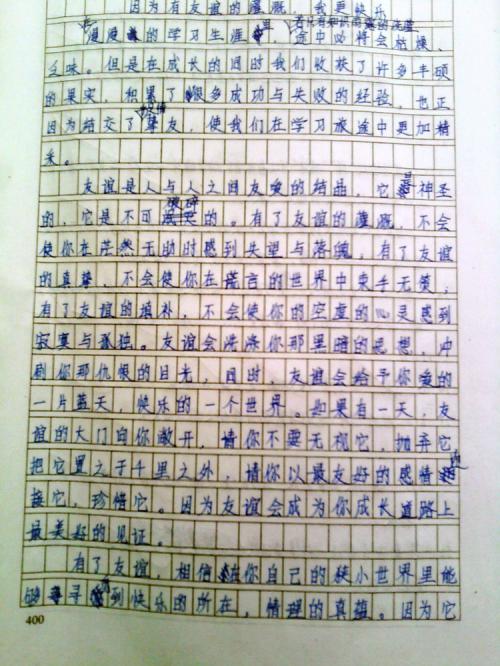 因为有友谊的灌溉，我更快乐
若没有知识雨露的洗盥
漫漫的学习生涯里，途中必将会枯燥、
乏味。但是在成长的同时我们收获了许多丰硕
的果实，积累了很多成功与失败的经验，也正
因为结交了友，使我们在学习旅途中更加精
采。
友谊是人与人之间友爱的结晶，它是神圣
的，它是不可破碎的。有了友谊的灌溉，不会
使你在茫然无助时感到失望与落魄。有了友谊
的真挚，不会使你在谎言的世界中束手无策，
有了友谊的填补，不会使你的空虚的心灵感到
寂寞与孤独。友谊会洗涤你那黑暗的思想，冲
刷你那仇恨的目光，同时，友谊会给予你爱的
一片蓝天，快乐的一个世界。如果有一天，友
谊的大门向你敞开，请你不要无视它，抛弃它
把它置之于千里之外，请你以最友好的感情迎
接它，珍惜它。因为友谊会成为你成长道路上
最美好的见证。
有了友谊，相信在你自己的狭小世界里能
够寻到快乐的所在，情理的真蕴。因为它
400